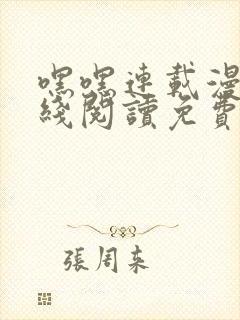 嘿嘿連載漫
綫閱讀免費
張周來